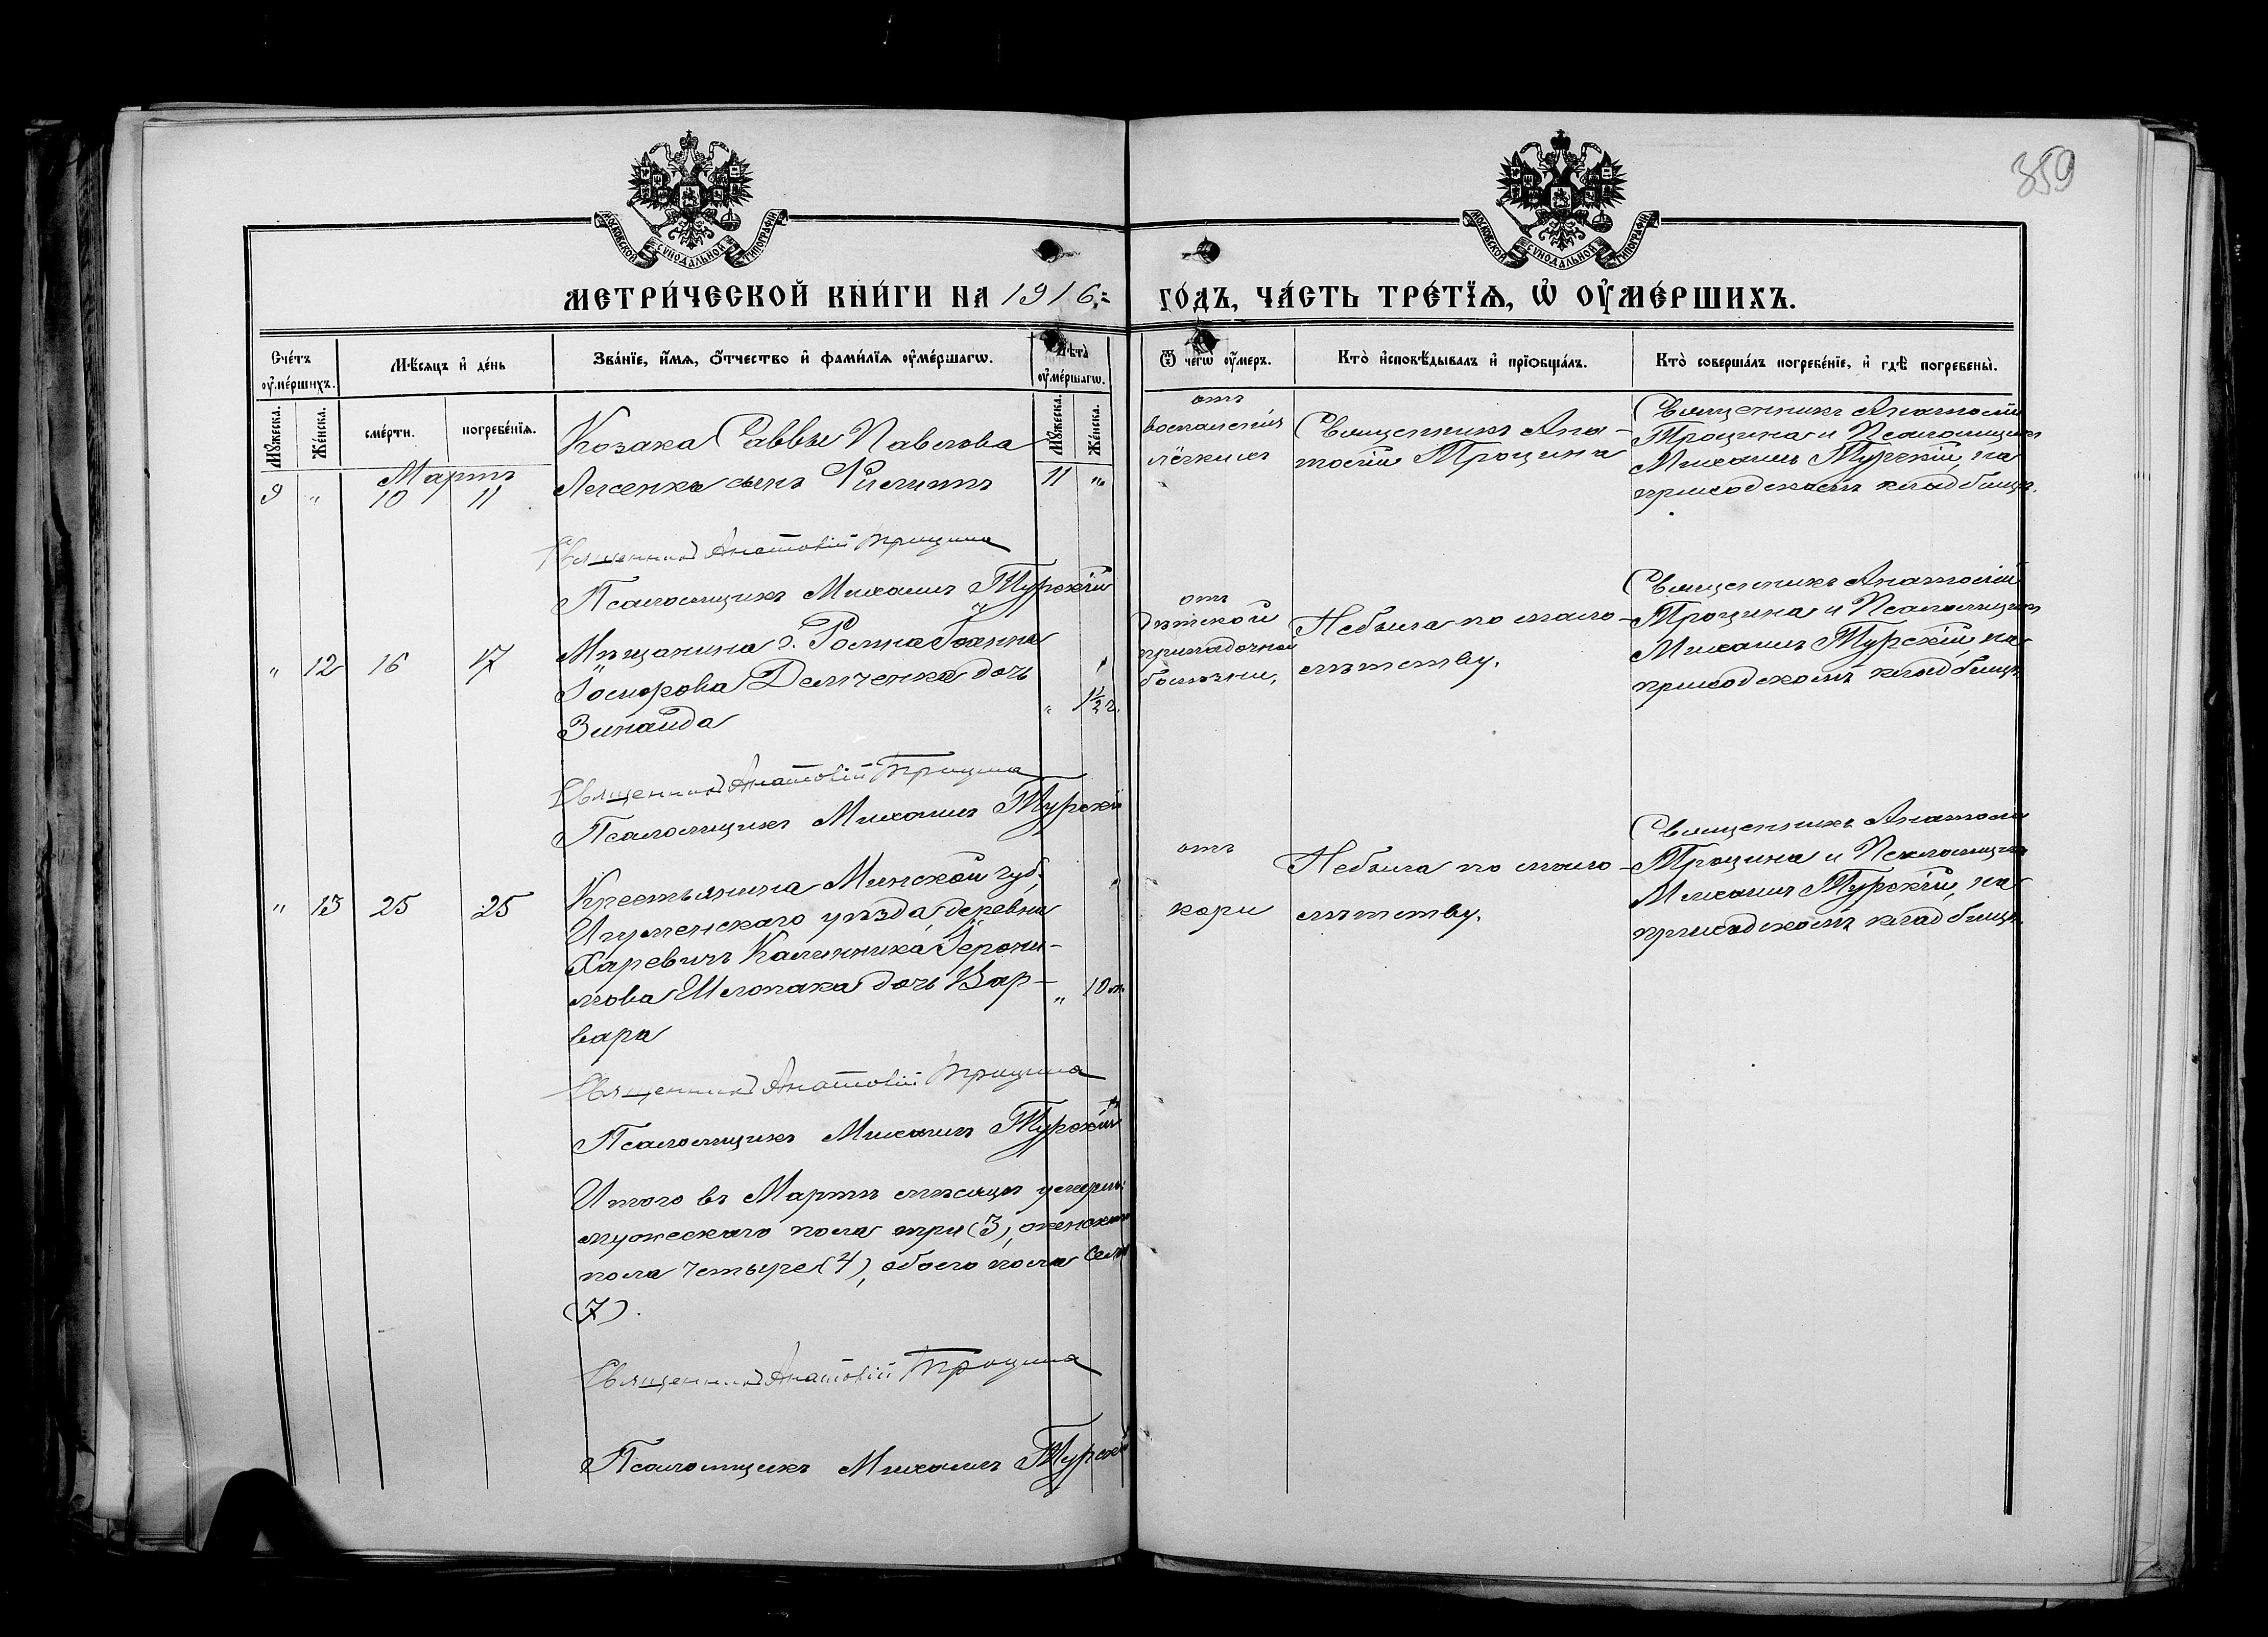 359
МОСКОВСКОЙ СУНОДАЛЬНОЙ ТИПОГРАФІИ
МОСКОВСКОЙ СУНОДАЛЬНОЙ ТИПОГРАФІИ
МЕТРИ́ЧЕСКОЙ КНИ́ГИ НА 1916
ГО́ДЪ, ЧА́СТЬ ТРЕ́ТЇѦ, Ѡ҆ ОУ҆МЕ́РШИХЪ.
Сче́тъ оу҆ме́ршихъ.
Мѣ́сяцъ и҆ де́нь
Зва́нїе, и҆́мѧ, ѻ҆́тчество и҆ фами́лїѧ оу҆ме́ршагѡ.
Лѣ́та оу҆ме́ршагѡ.
Ѿ чегѡ̀ оу҆́меръ.
Кто̀ и҆сповѣ́дывалъ и҆ прїѡбща́лъ.
Кто̀ соверша́лъ погребе́нїе, и҆ гдѣ̀ погребены̀.
Мꙋ́жеска.
Же́нска.
сме́рти.
погребе́нїѧ.
Мꙋ́жеска.
Же́нска.
Мартъ
9 " 10 11
Козака Саввы Павлова
сынъ Филиппъ
11 "
отъ
воспаленія
лёгкихъ
Священникъ Ана-
толій Троцина
Священникъ Анатолій
Троцина и Псаломщикъ
Михаилъ Турскій, на
приходскомъ кладбищѣ.
Священникъ Анатолій Троцина
Псаломщикъ Михаилъ Турскій
" 12 16 17
Мѣщанина г. Ромна Іоанна
Демченка дочь
Зинаида
" 1½ г.
отъ
дѣтской
припадочной
болѣзни,
Небыла по мало-
лѣтству.
Священникъ Анатолій
Троцина и Псаломщикъ
Михаилъ Турскій, на
приходскомъ кладбищѣ
Священникъ Анатолій Троцина
Псаломщикъ Михаилъ Турскій
" 13 25 25
Крестьянина Минской губ.
Игуменскаго уѣзда, деревни
Харевичъ Каленника Іерони-
мова Шлопака дочь Вар-
вара
" 10 м.
отъ
кори
Небыла по мало-
лѣтству.
Священникъ Анатолій
Троцина и Псаломщикъ
Михаилъ Турскій, на
приходскомъ кладбищѣ.
Священникъ Анатолій Троцина
Псаломщикъ Михаилъ Турскій
Итого въ Мартѣ мѣсяцѣ умерло:
мужескаго пола три (3), женскаго
пола четыре (4), обоего пола семь
(7).
Священникъ Анатолій Троцина
Псаломщикъ Михаилъ Турскій